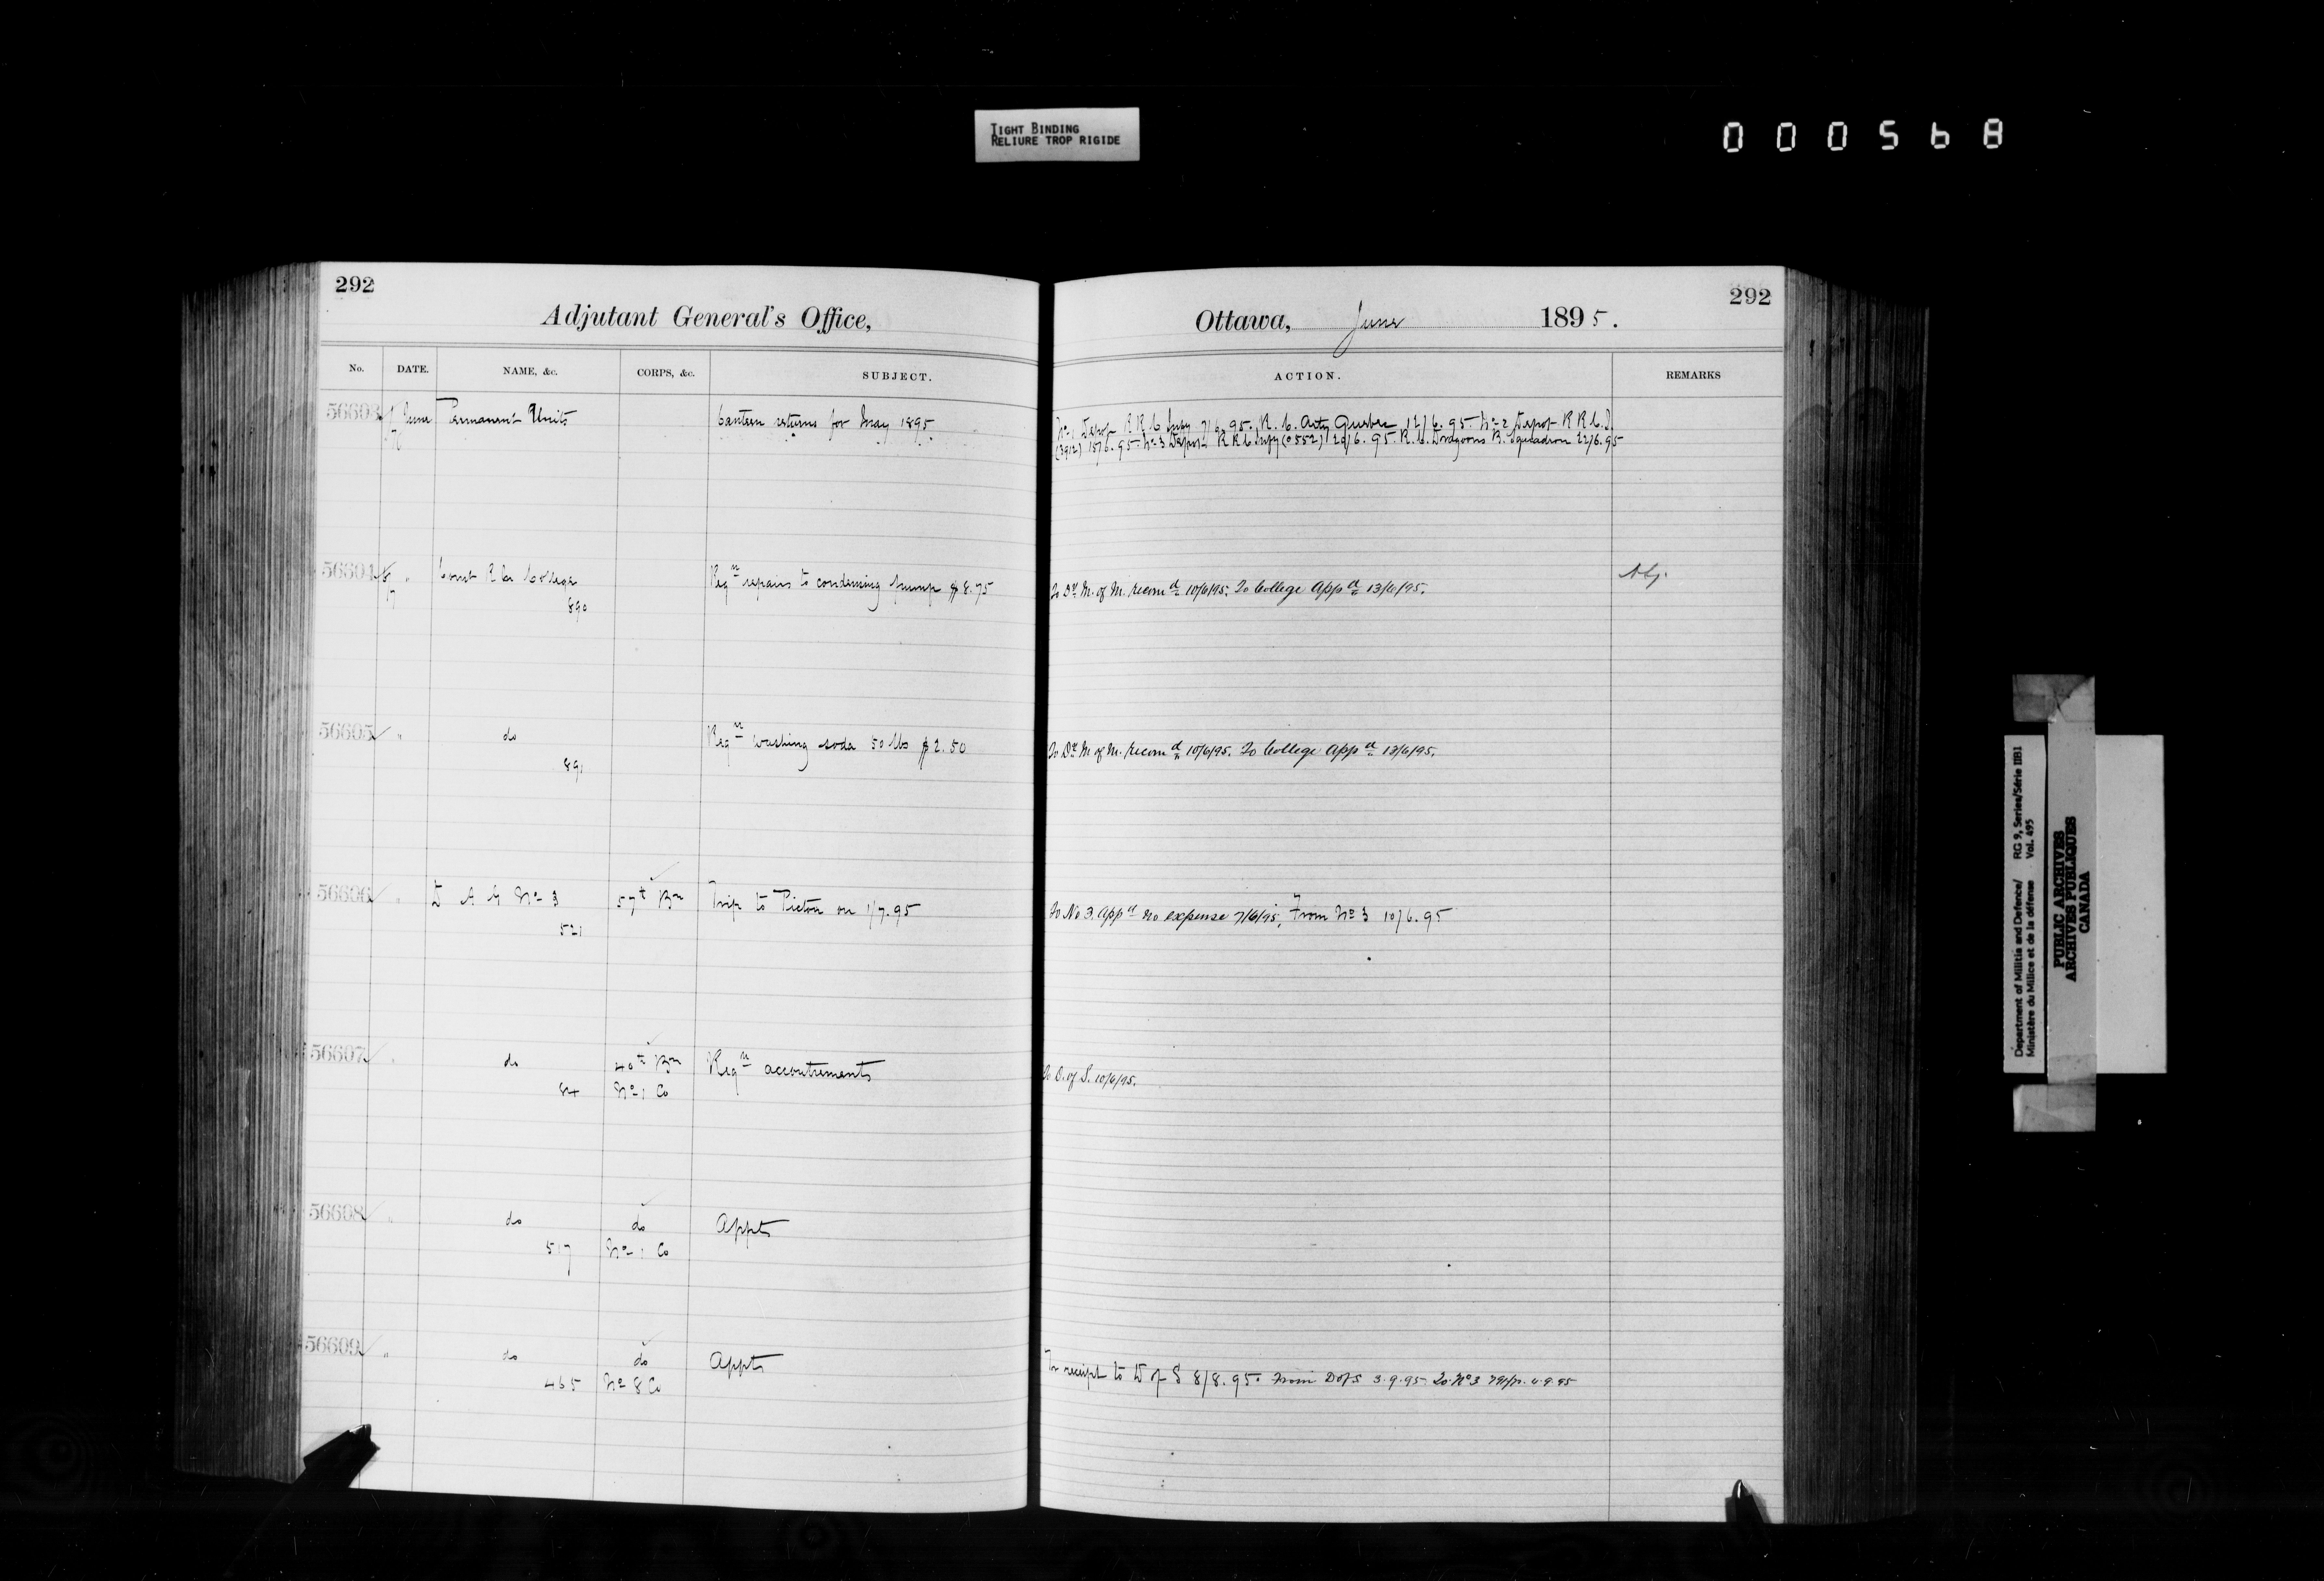 TIGHT BINDING
RELIURE TROP RIGIDE
000568
292
Adjutant General's Office,
Ottawa, June 1895.
292
No. DATE. NAME, &c. CORPS, &c. SUBJECT. ACTION. REMARKS
56603 June Permanent Units Canteen returns for May 1895
No 1 Depot R R C Infy 7/6.95. R. C. Arty Quebec 12/6.95. No 2 Depot R R C. I.
(3912) 15/6.95. No 3 Depot R R C Infy (0552) 20/6.95. R. C. Dragoons B. Squadron 22/6.95
56604 " Comt R M College Reqn repairs to condensing pump $8.75 To Dr. M. of M. recomd 10/6/95. To College Appd 13/6/95.
17 890
56605 " do Reqn washing soda 50 lbs $2.50 To Dr. M. of M. recomd 10/6/95. To College appd 13/6/95.
891
56606 " D A G No 3 57t Bn Trip to Picton on 1/7.95 To No 3. appd no expense 7/6/95, From No 3 10/6.95
521
56607 " do 40th Bn Reqn accoutrements To D. of S. 10/6/95.
84 No 1 Co
56608 " do do Appts
517 No 1 Co
56609 " do do Appts receipt to D of S 8/8.95. From D of S 3.9.95 To No 3 4.9.95
465 No 8 Co
Department of Militia and Defence/ RG 9, Series/Série IIB1
Ministère du Milice et de la défense Vol. 495
PUBLIC ARCHIVES
ARCHIVES PUBLIQUES
CANADA